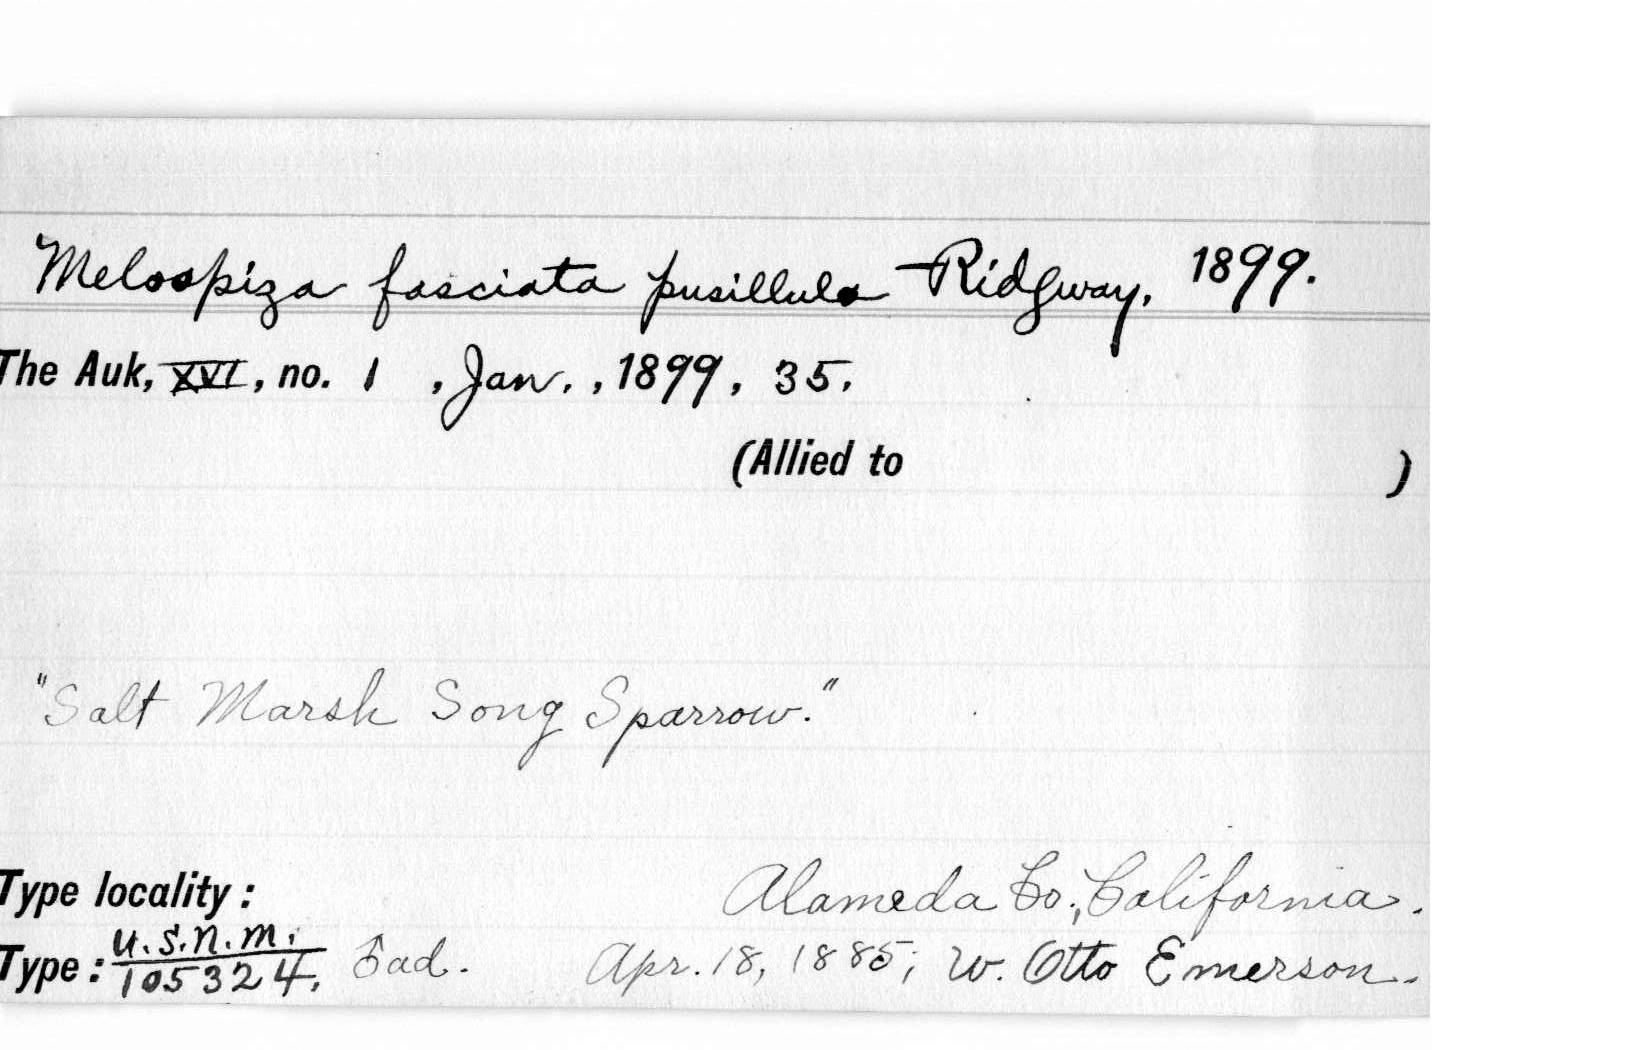 Melospiza fasciata pusillula Ridgway, 1899.
The Auk, XVI, no. 1, Jan., 1899, 35.
(Allied to )
"Salt Marsh Song Sparrow."
Type locality: Alameda Co., California.
Type: U.S.N.M. 105324, ♂ ad. Apr. 18, 1885; W. Otto Emerson.